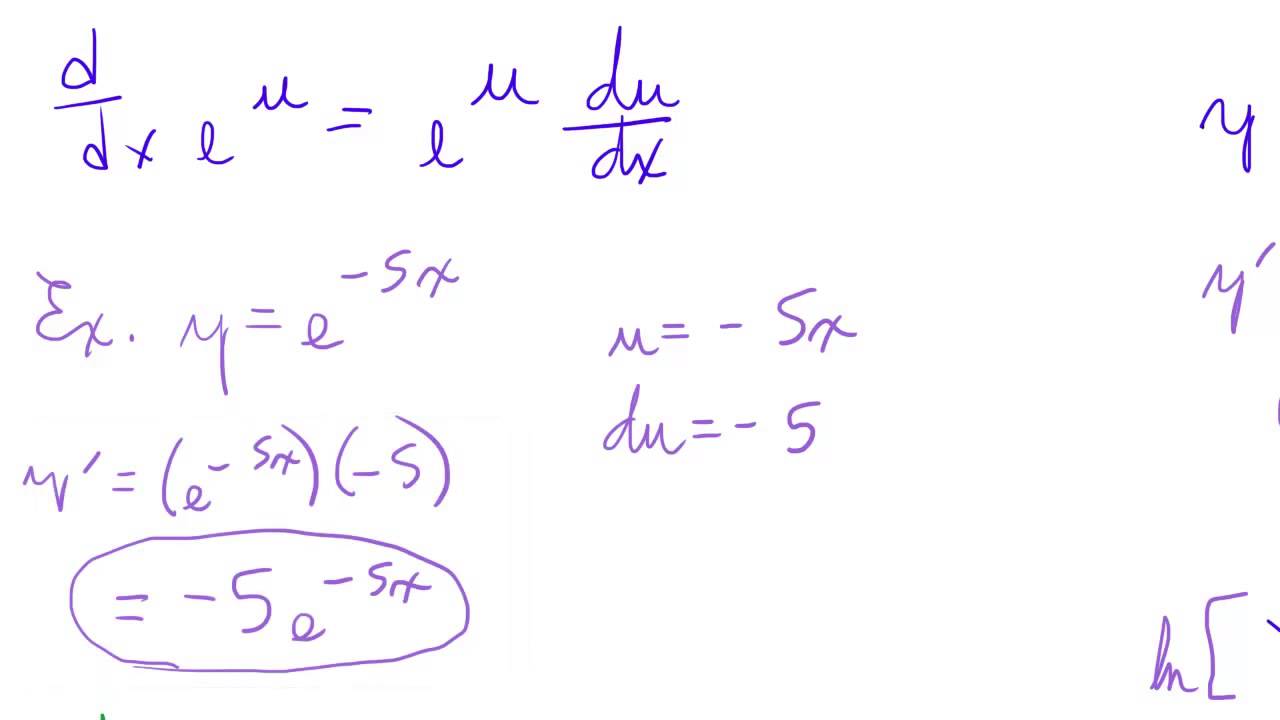 d/dx e^u = e^u du/dx
y
Ex. y = e^-5x
u = - 5x
y'
du = - 5
y' = (e^-5x)(-5)
= -5e^-5x
ln[